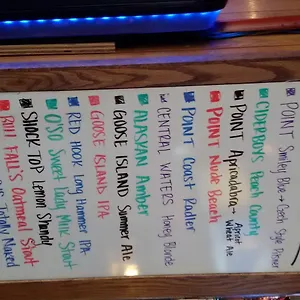 POINT Smiley Blue → Czech Style Pilsner
CIDERBOYS Peach County
POINT Apricadabra → Apricot
Wheat Ale
POINT Nude Beach
POINT Coast Radler
CENTRAL WATERS Honey Blonde
ALASKAN Amber
GOOSE ISLAND Summer Ale
GOOSE ISLAND IPA
RED HOOK Long Hammer IPA
O'SO Sweet Lady Milk Stout
SHOCK TOP Lemon Shandy
BULL FALLS Oatmeal Stout
Totally Naked